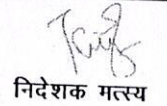 निदेशक मत्स्य